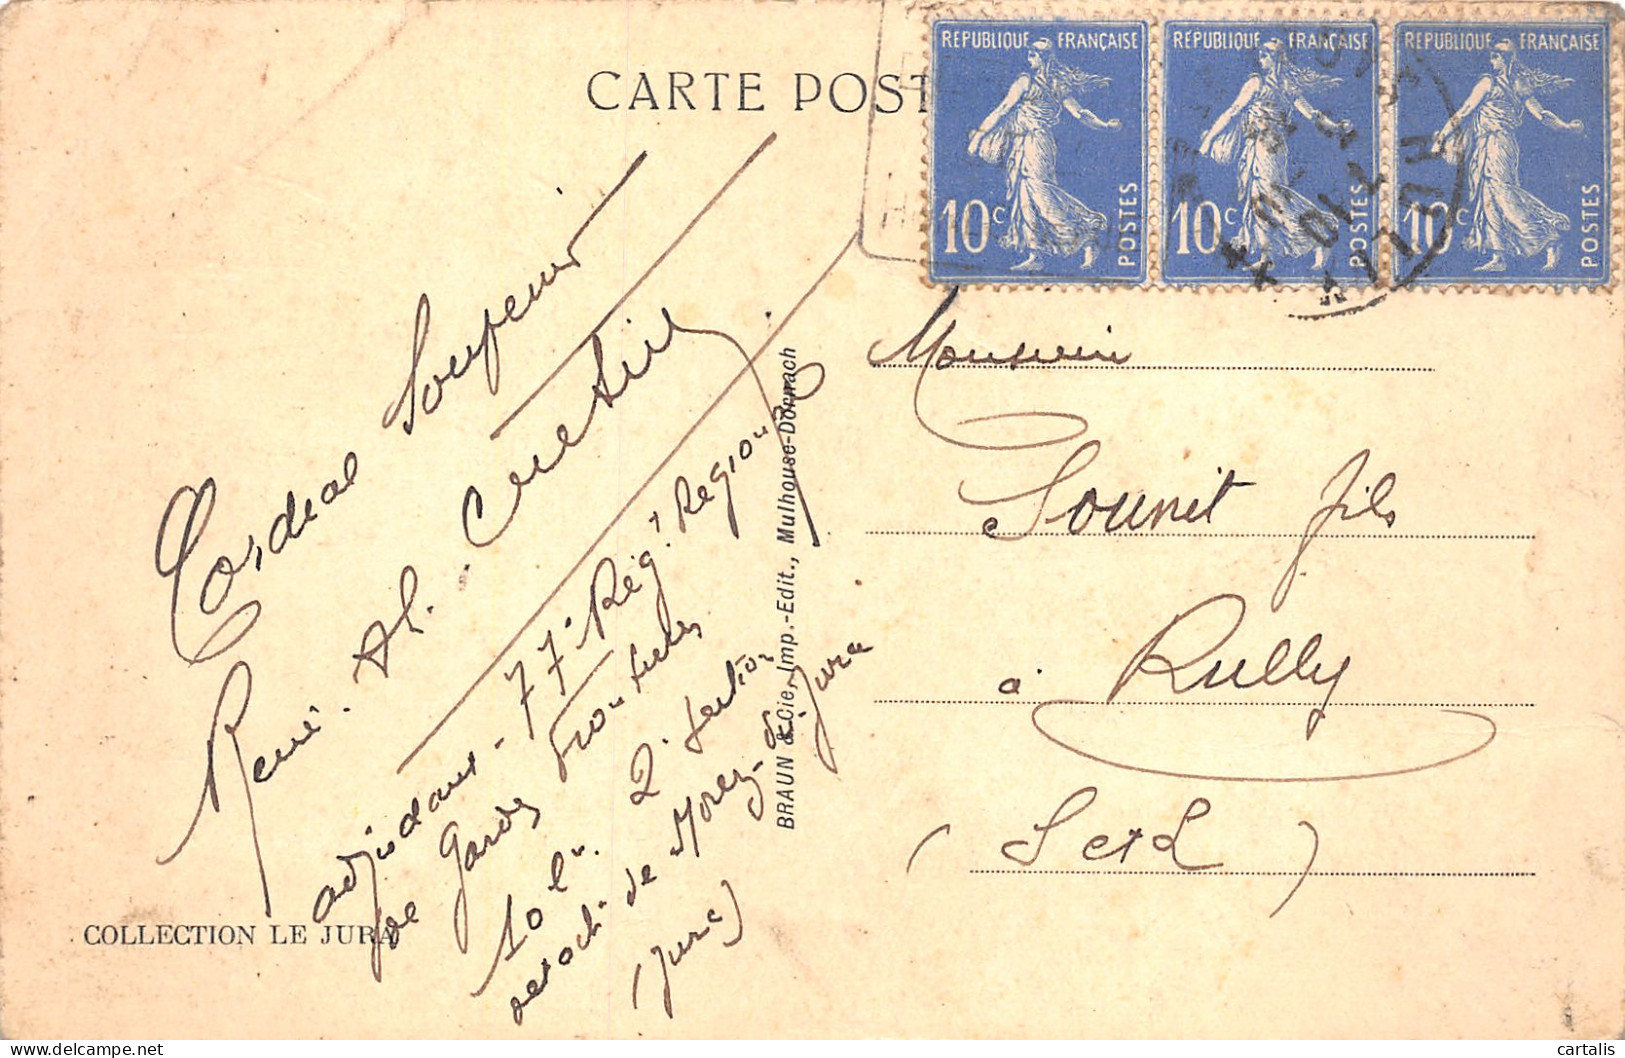 CARTE POST
RÉPUBLIQUE FRANÇAISE
10c POSTES
RÉPUBLIQUE FRANÇAISE
10c POSTES
RÉPUBLIQUE FRANÇAISE
10c POSTES
Cordeal Soupeur
René. Al.
adjudant - 77e Régt Region
de Gardes Frontières
10 2e section
détach. de Morez-du-Jura
(Jura)
BRAUN & Cie, Imp.-Edit., Mulhouse-Dornach
Monsieur
Sounit fils
à Rully
(S et L)
COLLECTION LE JURA
cartalis